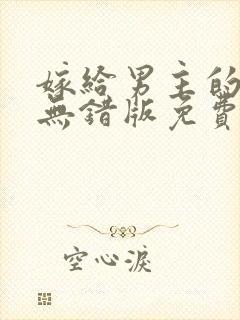 嫁給男主的
無錯版免費
空心淚